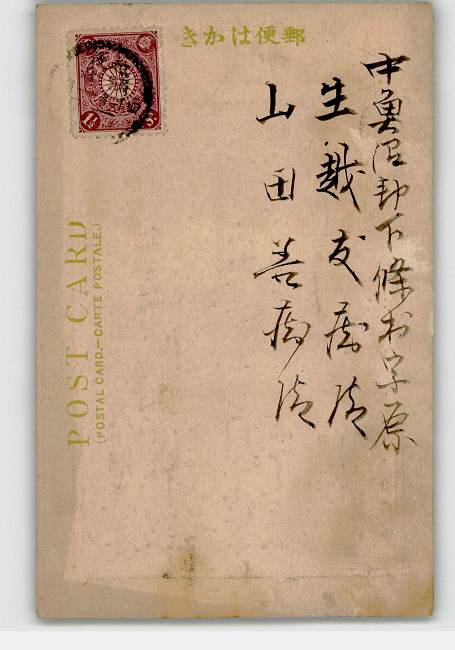 郵便はかき
中魚沼郡下條村字原
生越友蔵様
山田善蔵様
POST CARD
(POSTAL CARD.—CARTE POSTALE.)
1½ Sn.